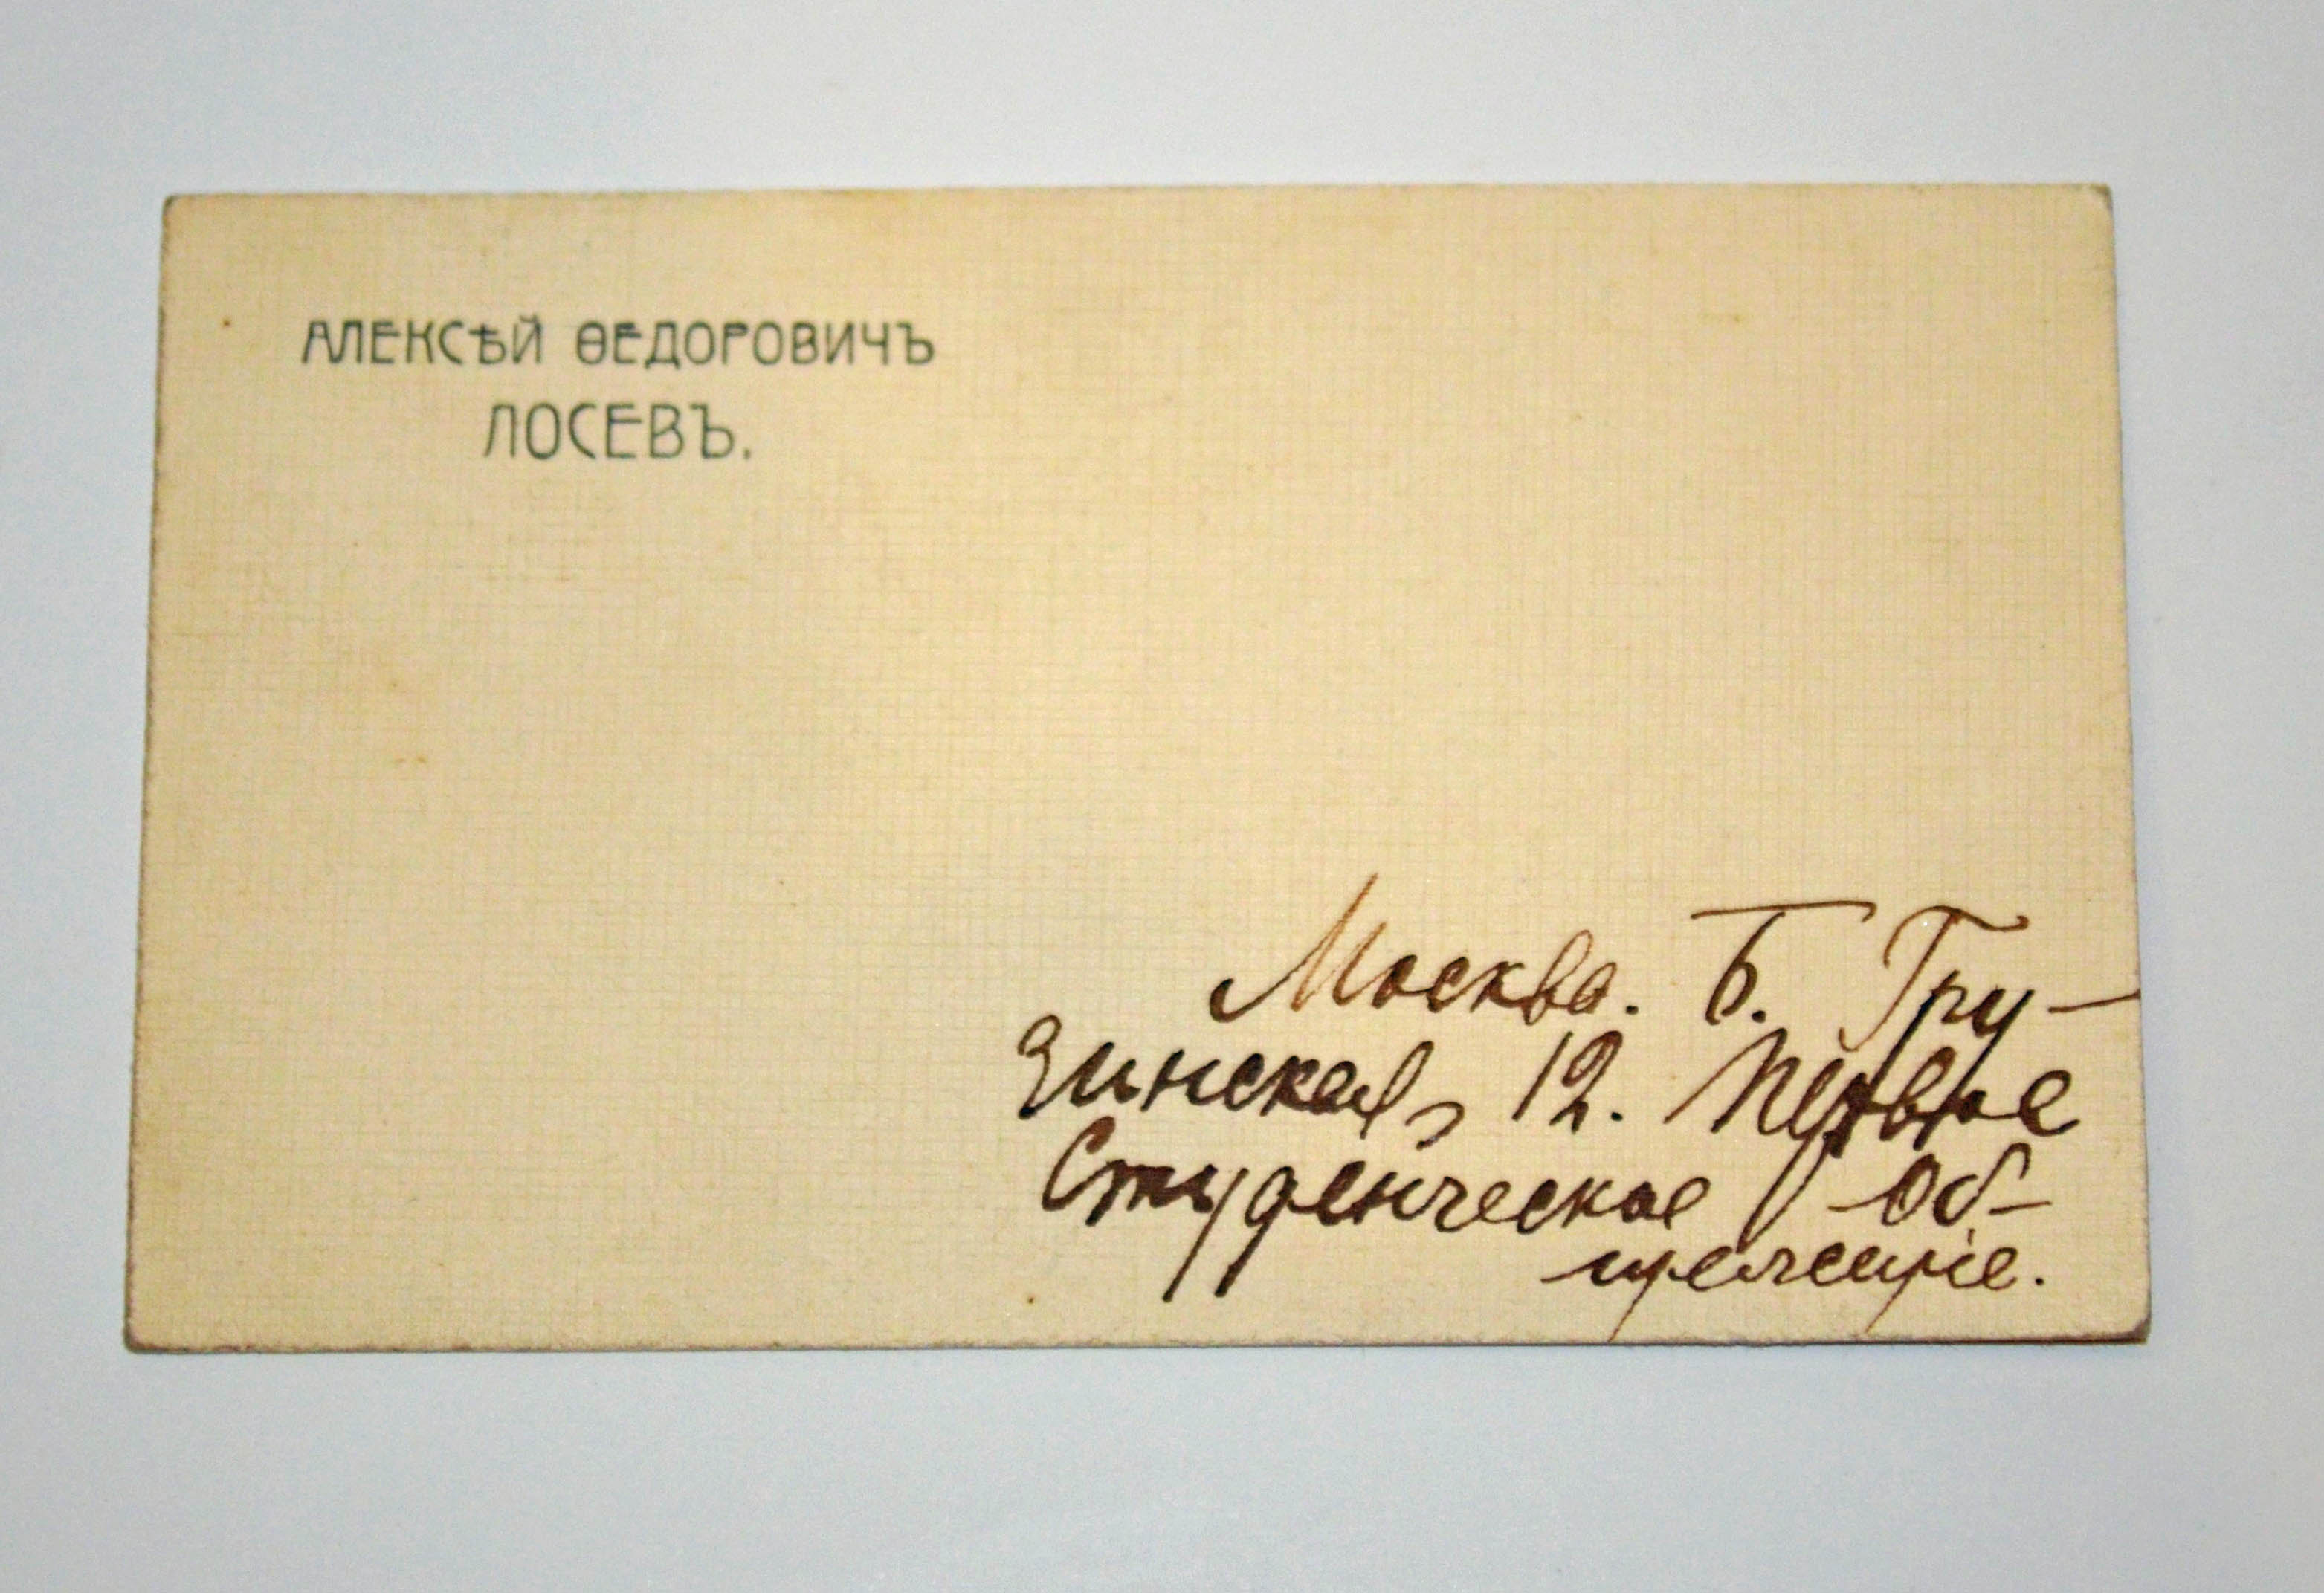 АЛЕКСѢЙ ѲЕДОРОВИЧЪ
ЛОСЕВЪ.
Москва. Б. Гру-
зинская, 12. Первое
Студенческое Об-
щежитіе.